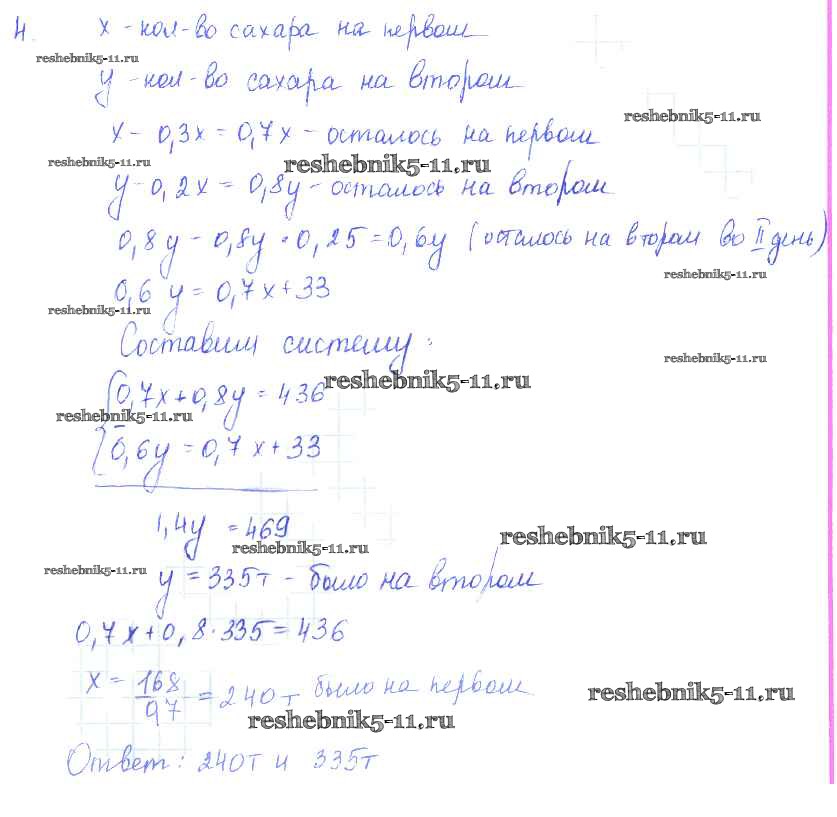 4. x - кол-во сахара на первом
reshebnik5-11.ru
y - кол-во сахара на втором
reshebnik5-11.ru
x - 0,3x = 0,7x - осталось на первом
reshebnik5-11.ru
reshebnik5-11.ru
y - 0,2x = 0,8y - осталось на втором
0,8y - 0,8y · 0,25 = 0,6y (осталось на втором во II день)
reshebnik5-11.ru
0,6 y = 0,7x + 33
reshebnik5-11.ru
Составим систему:
reshebnik5-11.ru
reshebnik5-11.ru
0,7x + 0,8y = 436
reshebnik5-11.ru
0,6y = 0,7x + 33
1,4y = 469
reshebnik5-11.ru
reshebnik5-11.ru
reshebnik5-11.ru
y = 335т - было на втором
0,7x + 0,8 · 335 = 436
x = 168/97 = 240т было на первом
reshebnik5-11.ru
reshebnik5-11.ru
Ответ: 240т и 335т